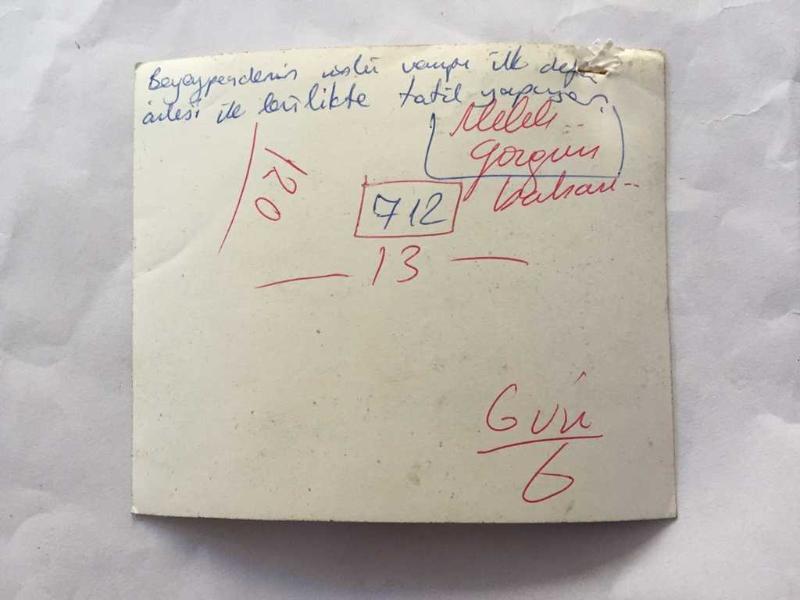 Beyazperdenin ünlü vampı ilk defa
ailesi ile birlikte tatil yapıyor.
Melek
Görgün
120
712
13
Gün
6